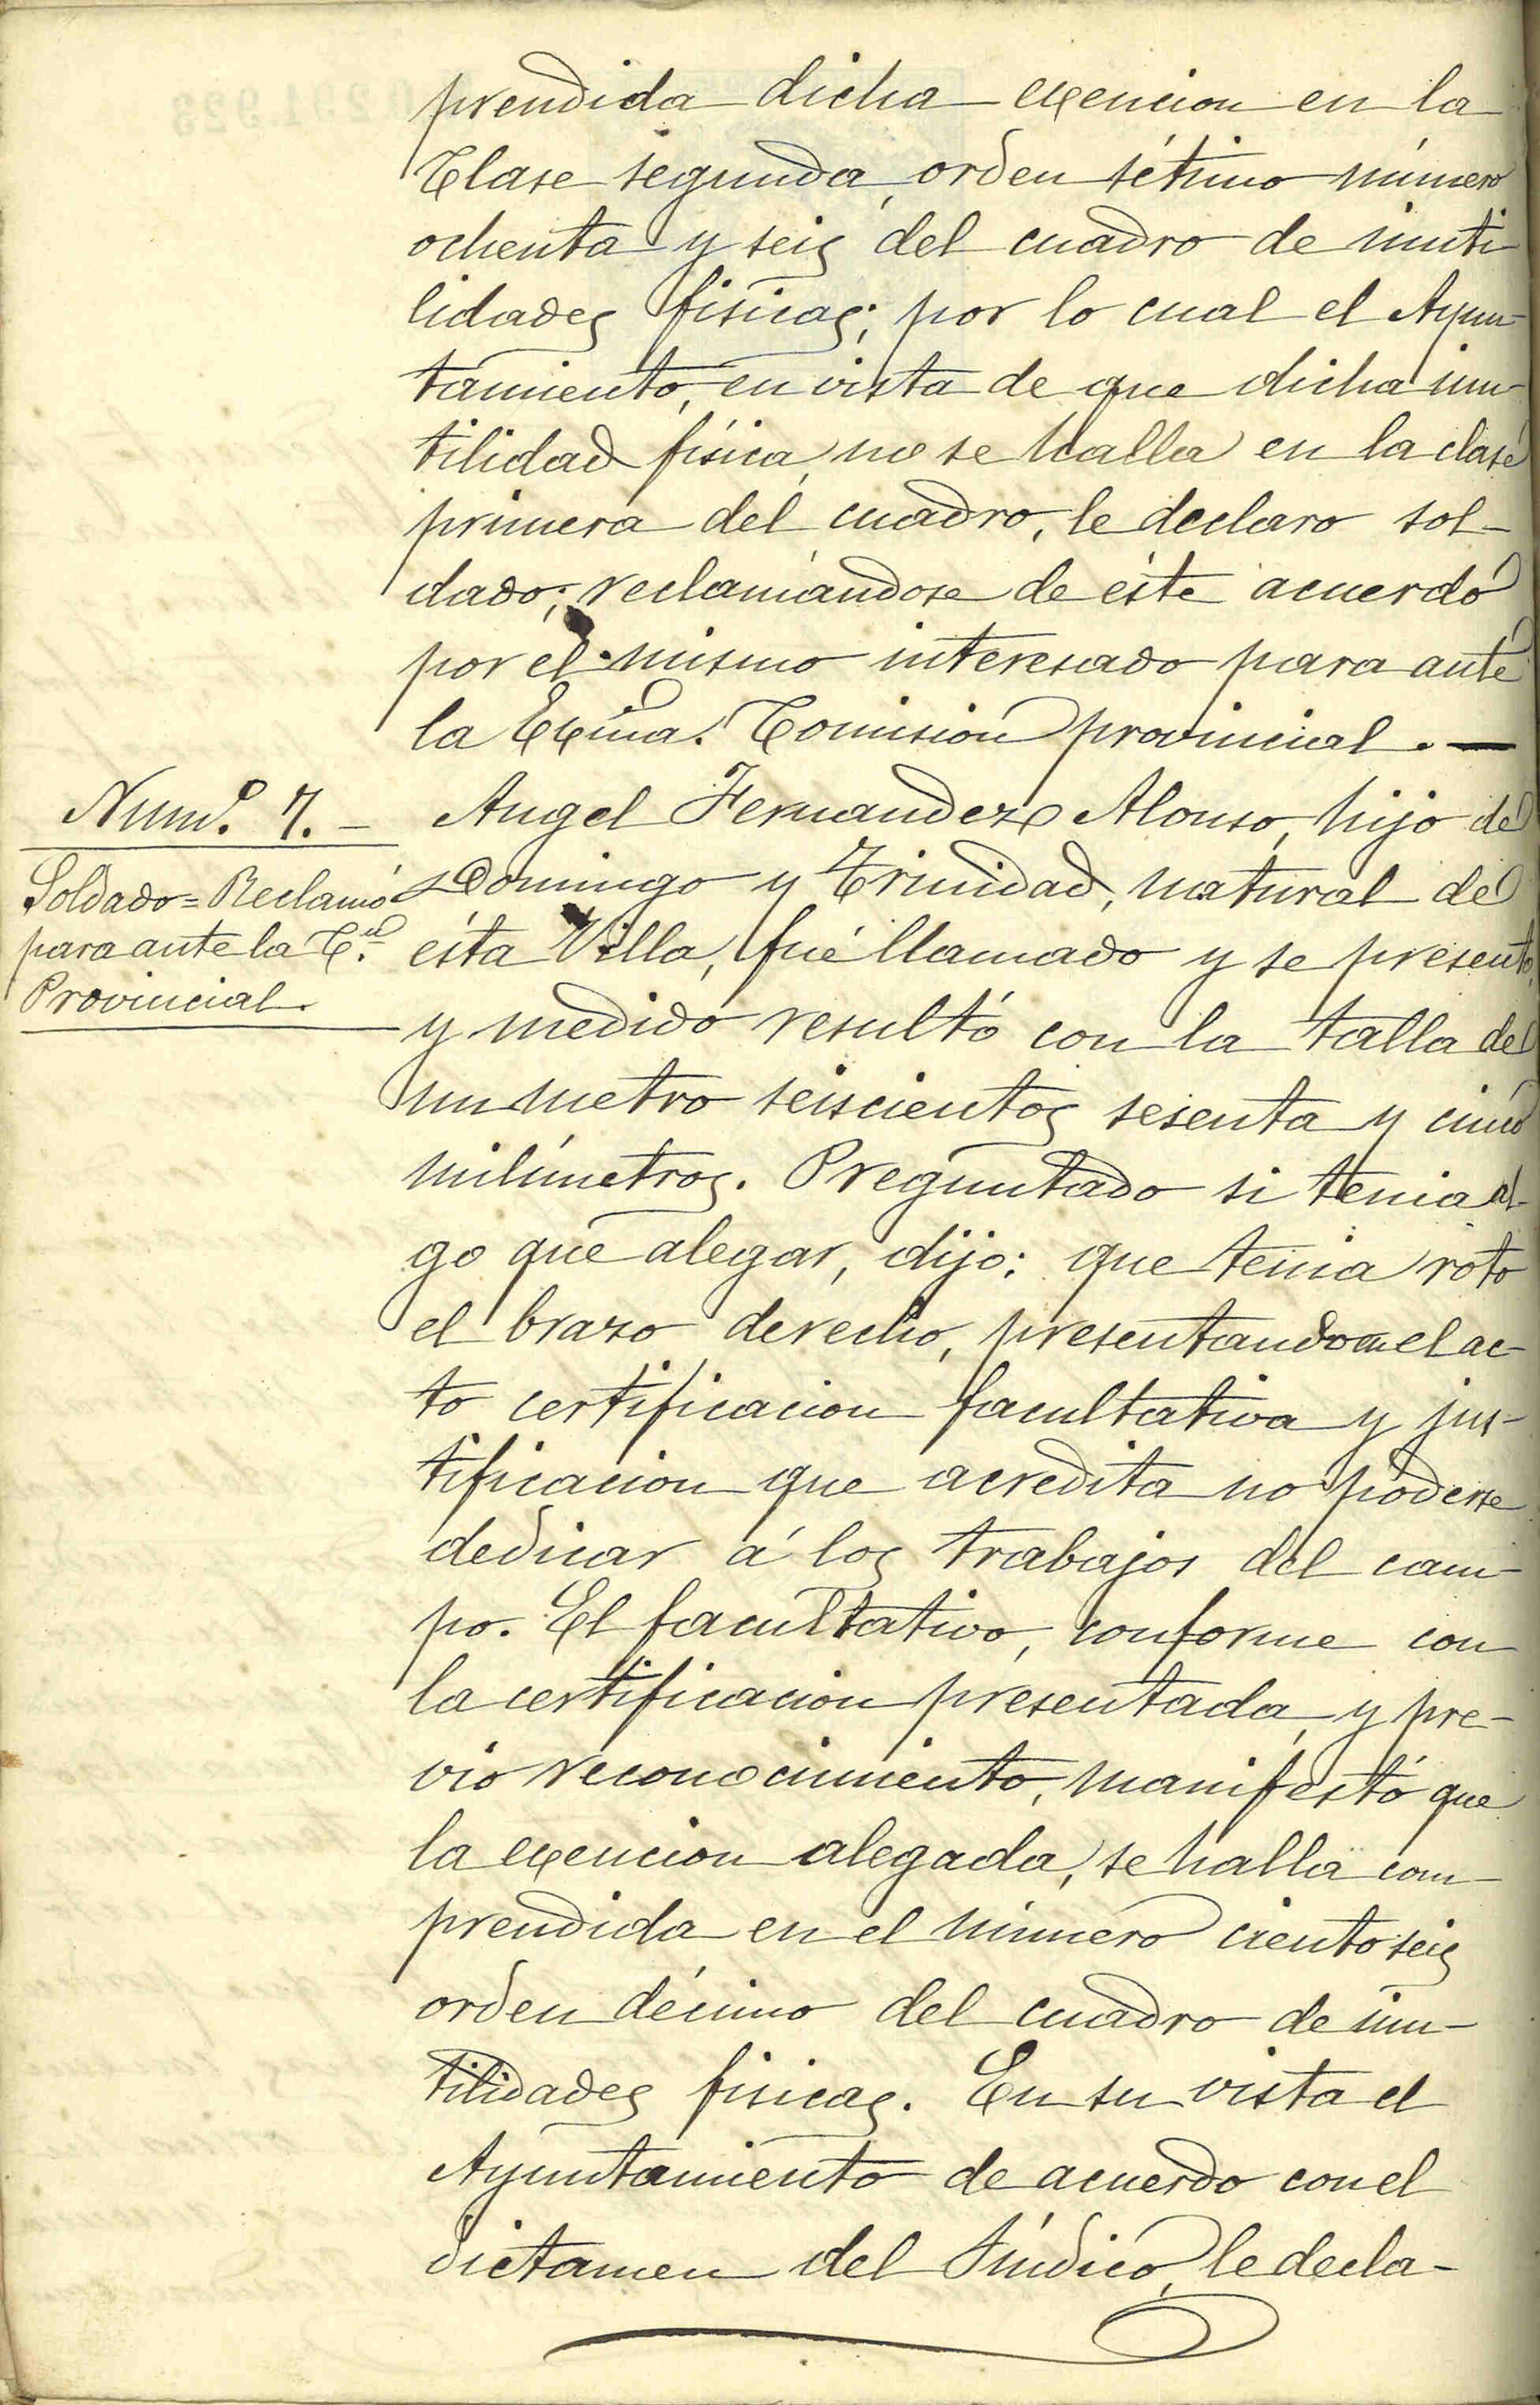 prendida dicha exencion en la
Clase segunda, orden sétimo número
ochenta y seis del cuadro de inuti-
lidades fisicas; por lo cual el Ayun-
tamiento, en vista de que dicha inu-
tilidad física, no se halla en la clase
primera del cuadro, le declaro sol-
dado; reclamándose de éste acuerdo
por el mismo interesado para ante
la Exma. Comision provincial. —
Num.º 7. —
Soldado = Reclamó
para ante la C.on
Provincial.
Angel Fernandez Alonso, hijo de
Domingo y Trinidad, natural de
ésta Villa, fué llamado y se presentó,
y medido resultó con la talla de
un metro seiscientos sesenta y cinco
milímetros. Preguntado si tenia al-
go que alegar, dijo: que tenia roto
el brazo derecho, presentando en el ac-
to certificacion facultativa y jus-
tificacion que acredita no poderse
dedicar á los trabajos del cam-
po. El facultativo, conforme con
la certificacion presentada, y pre-
vio reconocimiento, manifestó que
la exencion alegada, se halla com-
prendida en el número ciento seis
orden décimo del cuadro de inu-
tilidades fisicas. En su vista el
Ayuntamiento de acuerdo con el
dictamen del Síndico, le decla-